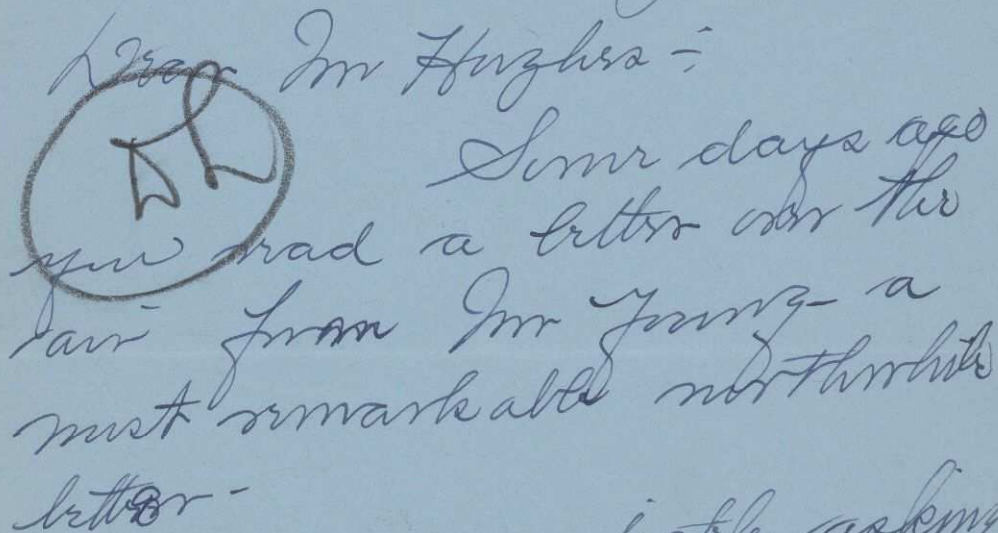 Dear Mr Hughes -:
DL
Some days ago
you read a letter over the
air from Mr Young - a
most remarkable worthwhile
letter -
asking